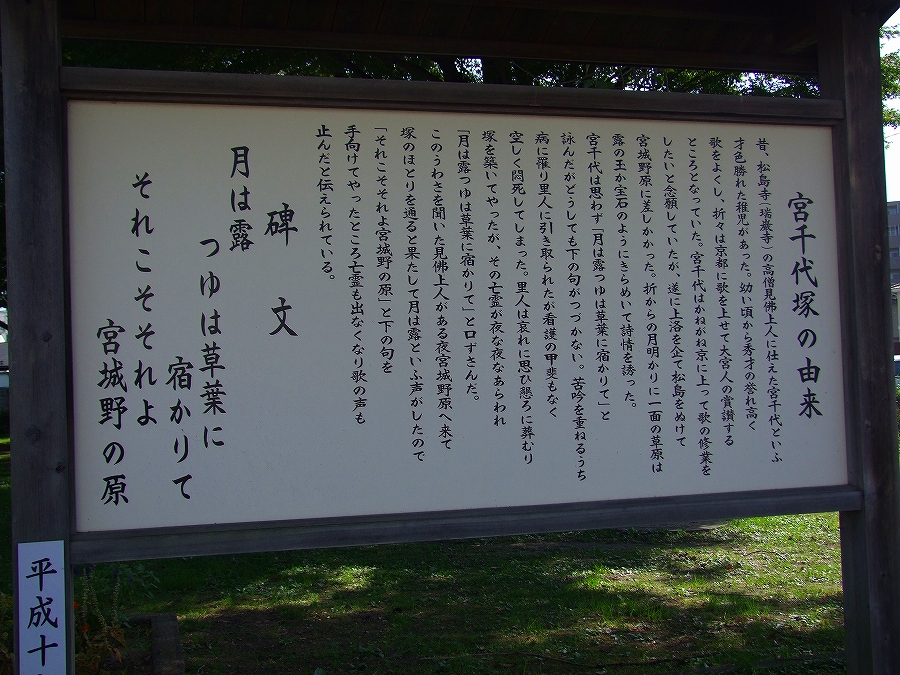 宮千代塚の由来
昔、松島寺(瑞巌寺)の高僧見佛上人に仕えた宮千代といふ
才色勝れた稚児があった。幼い頃から秀才の誉れ高く
歌をよくし、折々は京都に歌を上せて大宮人の賞讃する
ところとなっていた。宮千代はかねがね京に上って歌の修業を
したいと念願していたが、遂に上洛を企て松島をぬけて
宮城野原に差しかかった。折からの月明かりに一面の草原は
露の玉か宝石のようにきらめいて詩情を誘った。
宮千代は思わず「月は露つゆは草葉に宿かりて」と
詠んだがどうしても下の句がつづかない。苦吟を重ねるうち
病に罹り里人に引き取られたが看護の甲斐もなく
空しく悶死してしまった。里人は哀れに思ひ懇ろに葬むり
塚を築いてやったが、その亡霊が夜な夜なあらわれ
「月は露つゆは草葉に宿かりて」と口ずさんだ。
このうわさを聞いた見佛上人がある夜宮城野原へ来て
塚のほとりを通ると果たして月は露といふ声がしたので
「それこそそれよ宮城野の原」と下の句を
手向けてやったところ亡霊も出なくなり歌の声も
止んだと伝えられている。
碑文
月は露
つゆは草葉に
宿かりて
それこそそれよ
宮城野の原
平成十